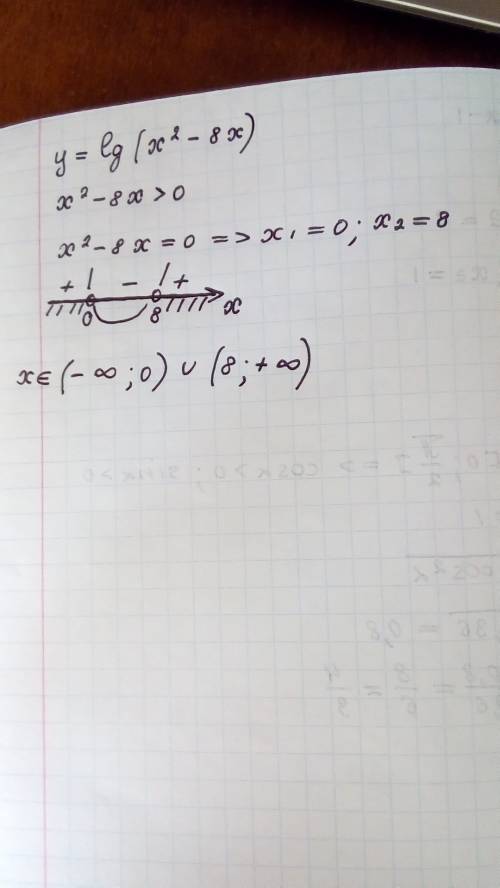 y = lg (x² - 8x)
x² - 8x > 0
x² - 8x = 0 => x₁ = 0; x₂ = 8
+ - +
0 8 x
x ∈ (-∞; 0) ∪ (8; +∞)